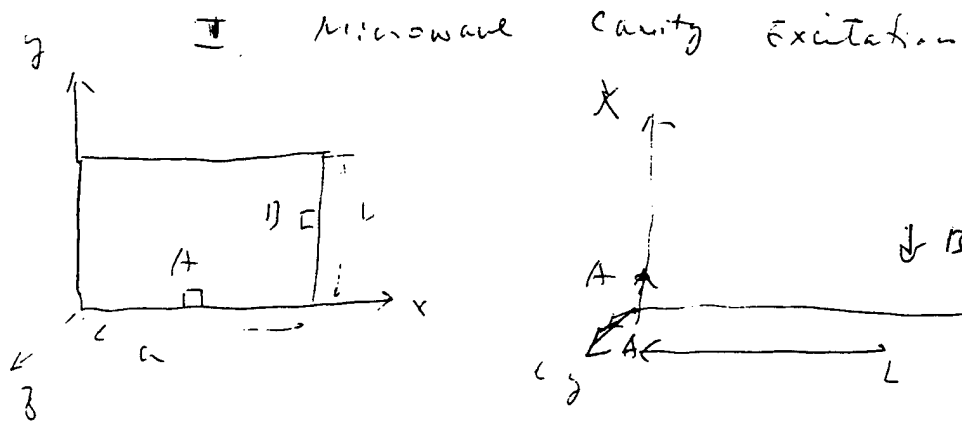 II. Microwave Cavity Excitation
y
X
B
A
A
B
x
a
A
L
y
z